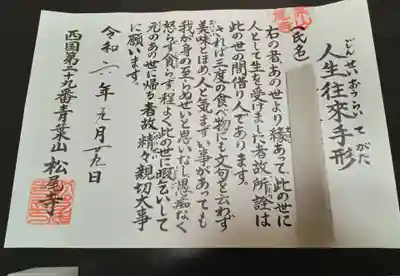 じんせいおうらいてがた
人生往來手形
(氏名)
右の者、あの世より縁あって、此の世に
人として生を受けました者故所詮は
此の世の間借り人であります。
されば三度の食べ物にも文句を云わず
美味とほめ、人と気まずい事があっても
我が身の至らぬせいと思いなし愚痴なく
怒らず貪らず、程よく此の世に暇乞いして
元のあの世に帰る者故精々親切大事
に願います。
令和六年元月廿九日
西国第二十九番青葉山 松尾寺